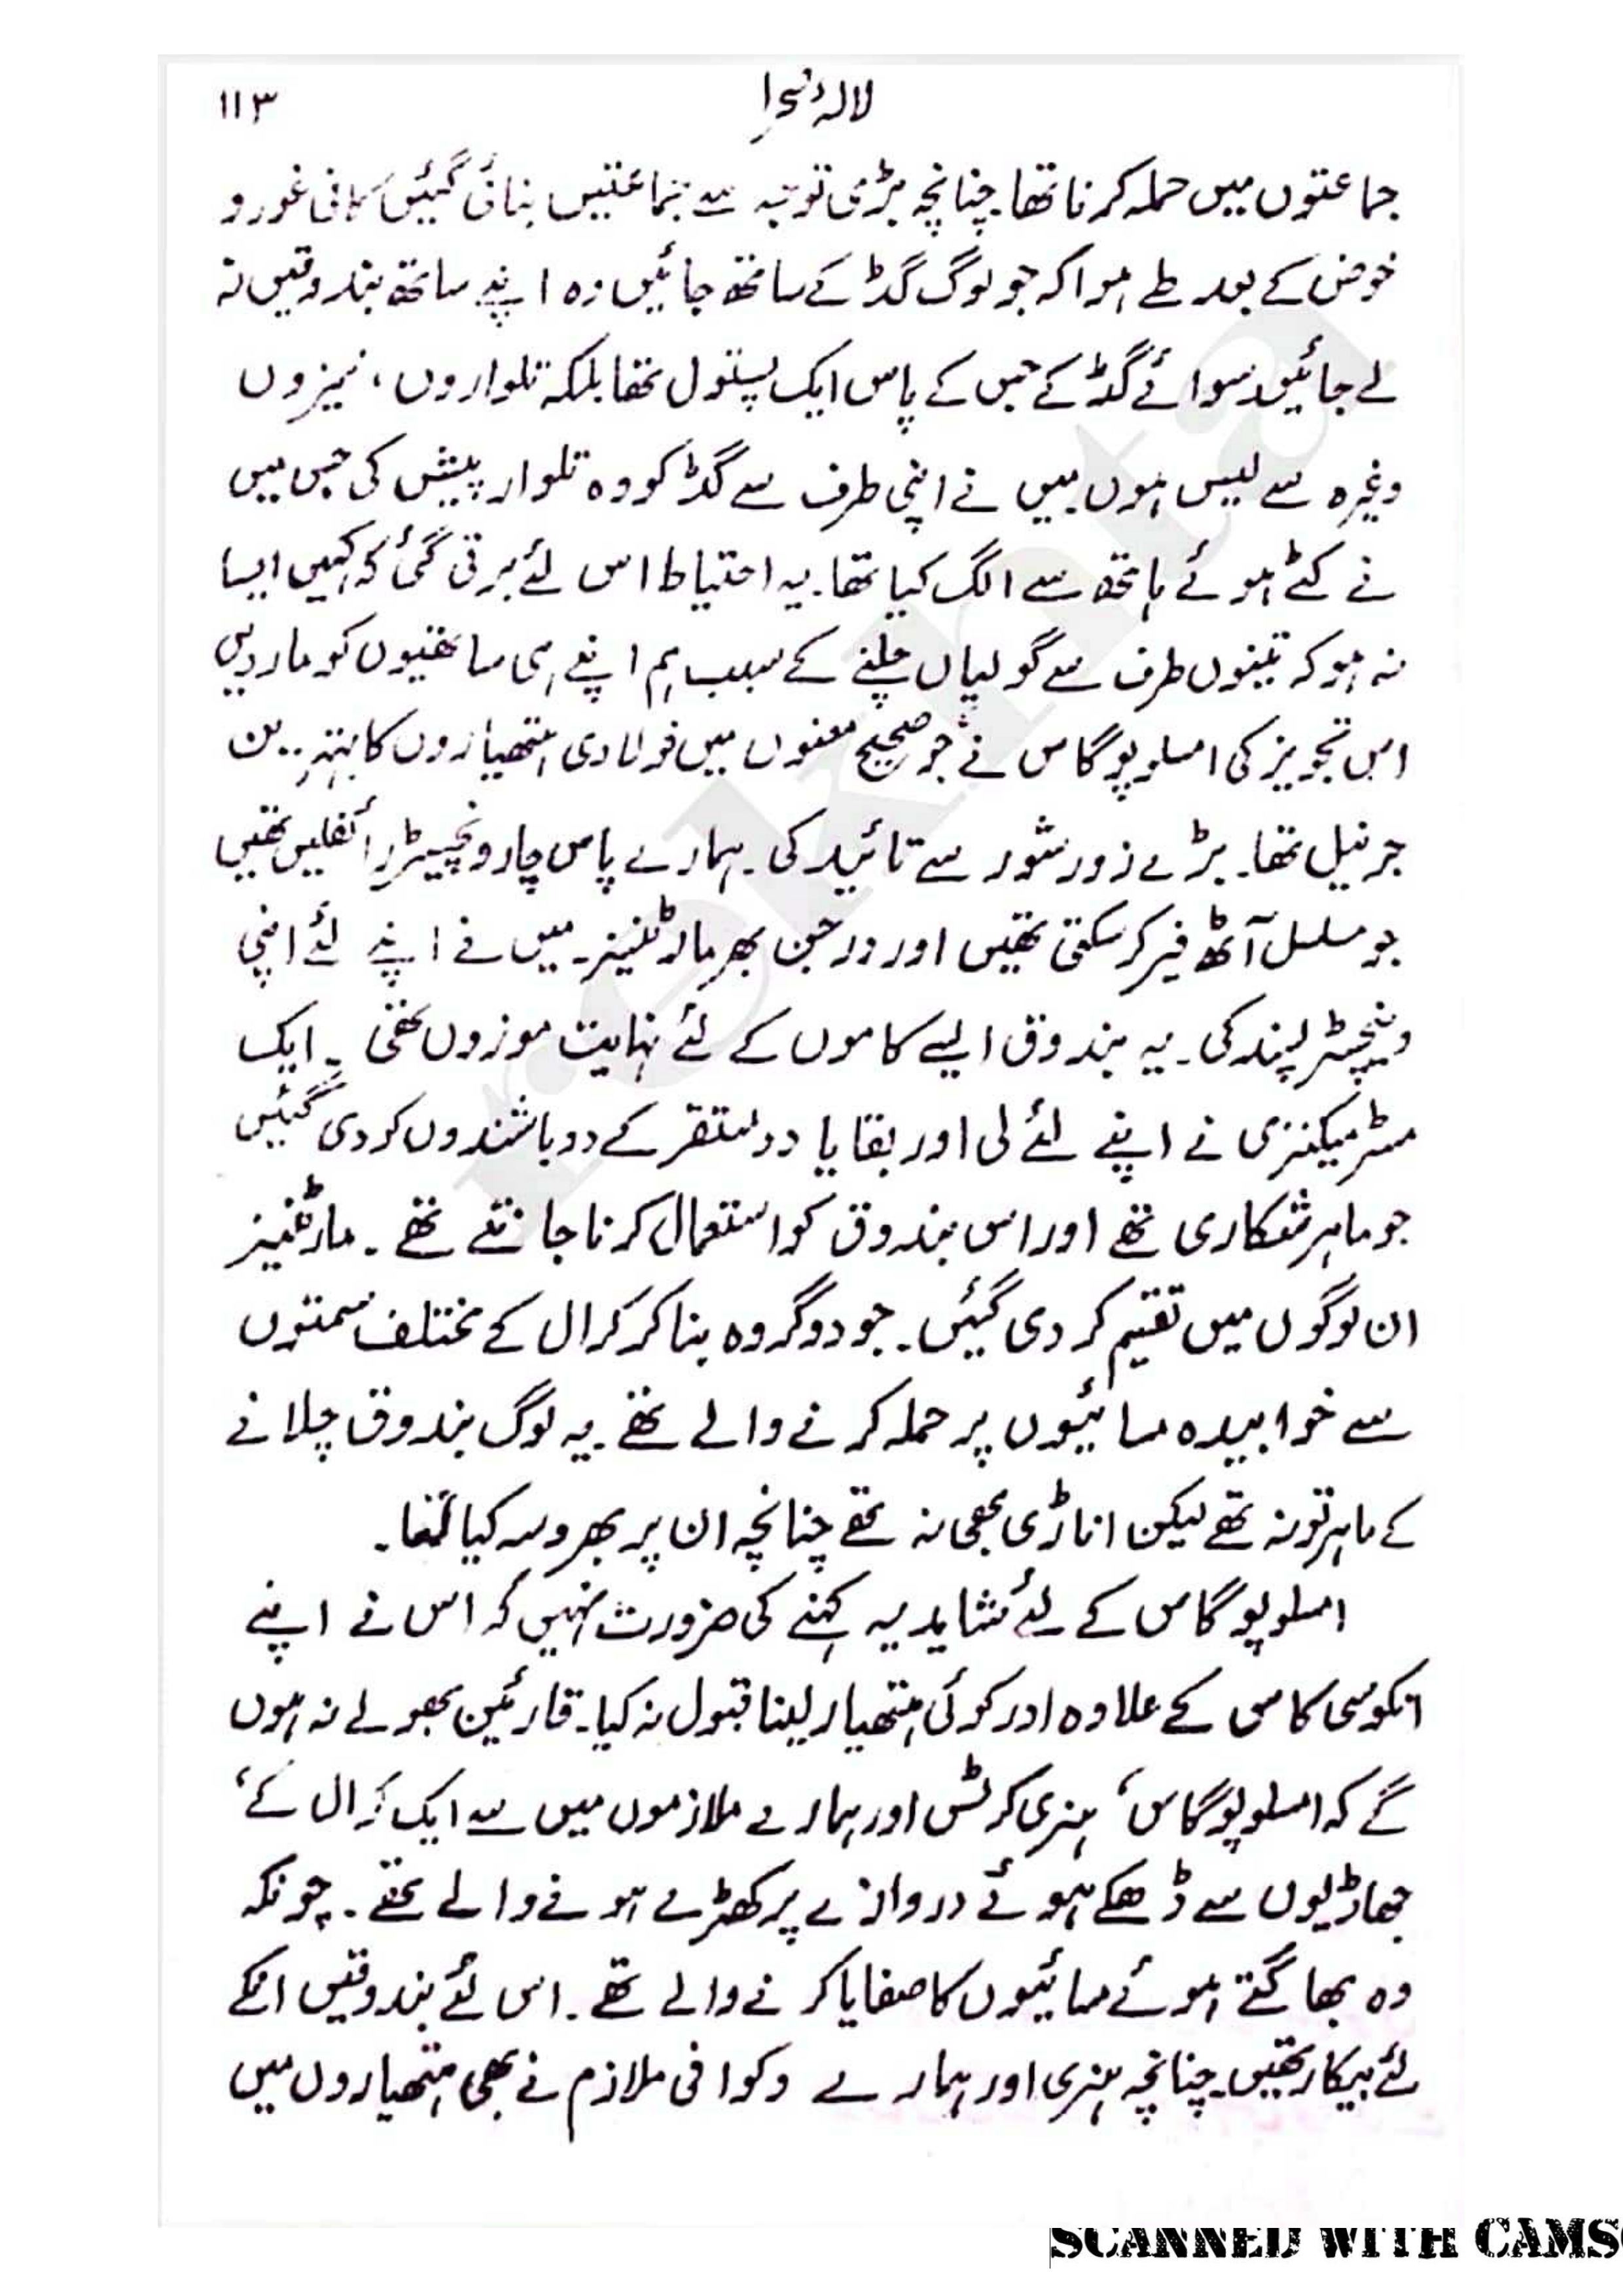 لالۂ صحرا ۱۱۳
جماعتوں میں حملہ کرنا تھا۔ چنانچہ بڑی توجہ سے جماعتیں بنائی گئیں کافی غور و
خوض کے بعد طے ہوا کہ جو لوگ گڈ کے ساتھ جائیں وہ اپنے ساتھ بندوقیں نہ
لے جائیں سوائے گڈ کے جس کے پاس ایک پستول تھا بلکہ تلواروں، نیزوں
وغیرہ سے لیس ہوں۔ میں نے اپنی طرف سے گڈ کو وہ تلوار پیش کی جس میں
نے کٹے ہوئے ہاتھ سے الگ کیا تھا۔ یہ احتیاط اس لئے برتی گئی کہ کہیں ایسا
نہ ہو کہ تینوں طرف سے گولیاں چلنے کے سبب ہم اپنے ہی ساتھیوں کو مار دیں
اس تجویز کی امسلوپوگاس نے جو صحیح معنوں میں فولادی ہتھیاروں کا بہترین
جرنیل تھا۔ بڑے زور شور سے تائید کی۔ ہمارے پاس چار ونچیسٹر رائفلیں تھیں
جو مسلسل آٹھ فیر کر سکتی تھیں اور درجن بھر مارٹینیز۔ میں نے اپنے لئے اپنی
ونچیسٹر پسند کی۔ یہ بندوق ایسے کاموں کے لئے نہایت موزوں تھی۔ ایک
مسٹر میکنزی نے اپنے لئے لی اور بقایا دو مستقر کے دو باشندوں کو دی گئیں
جو ماہر شکاری تھے اور اس بندوق کو استعمال کرنا جانتے تھے۔ مارٹینیز
ان لوگوں میں تقسیم کر دی گئیں۔ جو دو گروہ بنا کر کرال کے مختلف سمتوں
سے خوابیدہ مسائیوں پر حملہ کرنے والے تھے۔ یہ لوگ بندوق چلانے
کے ماہر تو نہ تھے لیکن اناڑی بھی نہ تھے چنانچہ ان پر بھروسہ کیا گیا۔
امسلوپوگاس کے لئے شاید یہ کہنے کی ضرورت نہیں کہ اس نے اپنے
انکوسی کاس کے علاوہ اور کوئی ہتھیار لینا قبول نہ کیا۔ قارئین بھولے نہ ہوں
گے کہ امسلوپوگاس، ہنری کرٹس اور ہمارے ملازموں میں سے ایک کرال کے،
جھاڑیوں سے ڈھکے ہوئے دروازے پر کھڑے ہونے والے تھے۔ چونکہ
وہ بھاگتے ہوئے مسائیوں کا صفایا کرنے والے تھے۔ اس لئے بندوقیں انکے
لئے بیکار تھیں۔ چنانچہ ہنری اور ہمارے وکوافی ملازم نے بھی ہتھیاروں میں
SCANNED WITH CAMS